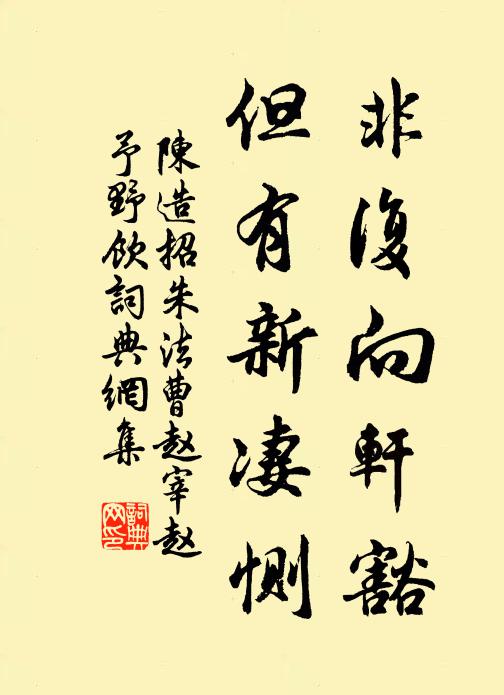 非復向軒豁
但有新凄惻
陳造招朱法曹赵宰赵
予野飲詞典網集
詞典网印